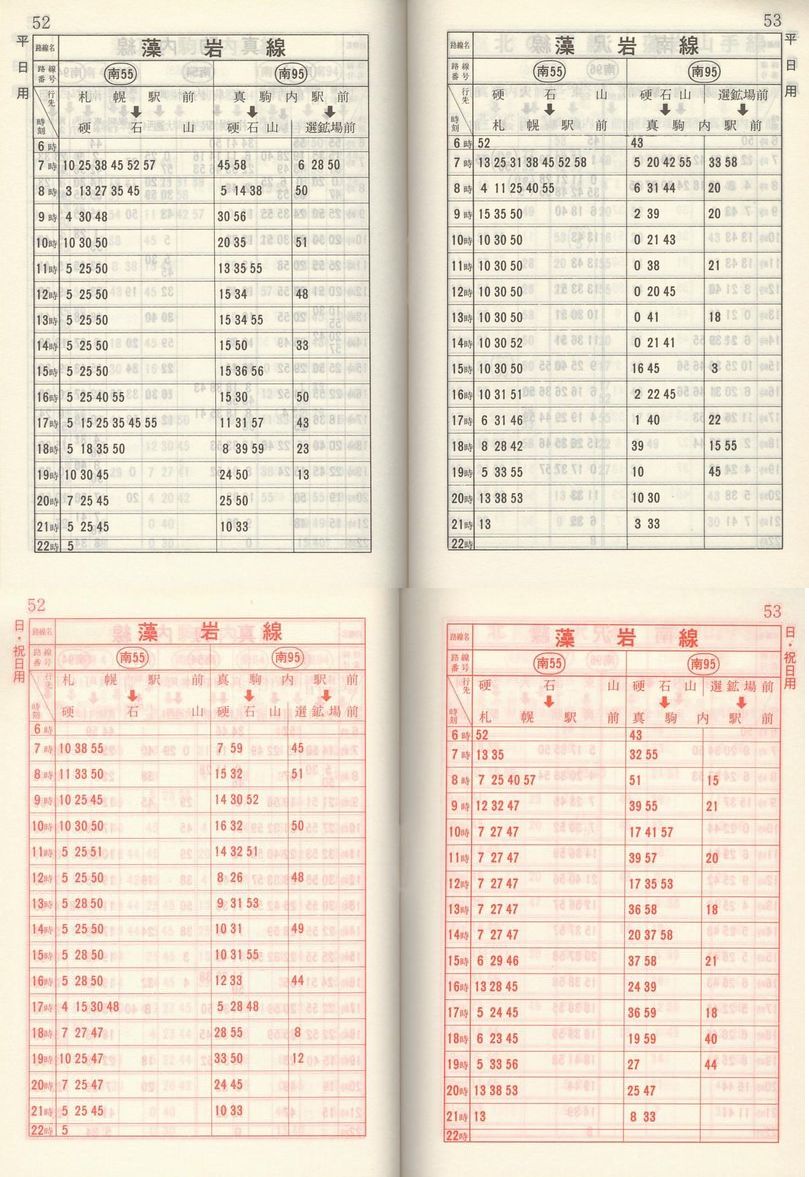 52
平日用
路線名 藻岩線
路線番号 南55 南95
行先 札幌駅前 真駒内駅前
時刻 硬石山 硬石山 選鉱場前
6時
7時 10 25 38 45 52 57 45 58 6 28 50
8時 3 13 27 35 45 5 14 38 50
9時 4 30 48 30 56
10時 10 30 50 20 35 51
11時 5 25 50 13 35 55
12時 5 25 50 15 34 48
13時 5 25 50 15 34 55
14時 5 25 50 15 50 33
15時 5 25 50 15 36 56
16時 5 25 40 55 15 30 50
17時 5 15 25 35 45 55 11 31 57 43
18時 5 18 35 50 8 39 59 23
19時 10 30 45 24 50 13
20時 7 25 45 25 50
21時 5 25 45 10 33
22時 5
53
平日用
路線名 藻岩線
路線番号 南55 南95
行先 硬石山 硬石山 選鉱場前
時刻 札幌駅前 真駒内駅前
6時 52 43
7時 13 25 31 38 45 52 58 5 20 42 55 33 58
8時 4 11 25 40 55 6 31 44 20
9時 15 35 50 2 39 20
10時 10 30 50 0 21 43
11時 10 30 50 0 38 21
12時 10 30 50 0 20 45
13時 10 30 50 0 41 18
14時 10 30 52 0 21 41
15時 10 30 50 16 45 3
16時 10 31 51 2 22 45
17時 6 31 46 1 40 22
18時 8 28 42 39 15 55
19時 5 33 55 10 45
20時 13 38 53 10 30
21時 13 3 33
22時
52
日・祝日用
路線名 藻岩線
路線番号 南55 南95
行先 札幌駅前 真駒内駅前
時刻 硬石山 硬石山 選鉱場前
6時
7時 10 38 55 7 59 45
8時 11 33 50 15 32 51
9時 10 25 45 14 30 52
10時 10 30 50 16 32 50
11時 5 25 51 14 32 51
12時 5 25 50 8 26 48
13時 5 28 50 9 31 53
14時 5 25 50 10 31 49
15時 5 28 50 10 31 55
16時 5 28 50 12 33 44
17時 4 15 30 48 5 28 48
18時 7 27 47 28 55 8
19時 10 25 47 33 50 12
20時 7 25 47 24 45
21時 5 25 45 10 33
22時 5
53
日・祝日用
路線名 藻岩線
路線番号 南55 南95
行先 硬石山 硬石山 選鉱場前
時刻 札幌駅前 真駒内駅前
6時 52 43
7時 13 35 32 55
8時 7 25 40 57 51 15
9時 12 32 47 39 55 21
10時 7 27 47 17 41 57
11時 7 27 47 39 57 20
12時 7 27 47 17 35 53
13時 7 27 47 36 58 18
14時 7 27 47 20 37 58
15時 6 29 46 37 58 21
16時 13 28 45 24 39
17時 5 24 45 36 59 18
18時 6 23 45 19 59 40
19時 5 33 56 27 44
20時 13 38 53 25 47
21時 13 8 33
22時